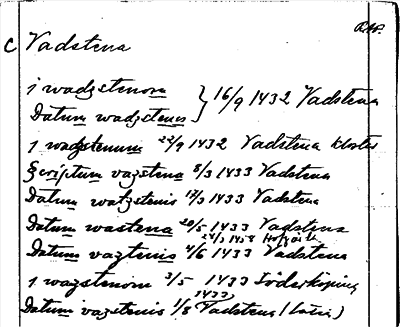 RAP.
C Vadstena
i wadzstenom } 16/9 1432 Vadstena
Datum wadzstenis
i wadzstenum 22/9 1432 Vadstena kloster
Scriptum vazstena 8/3 1433 Vadstena
Datum watzstenis 17/3 1433 Vadstena
Datum wastena 20/5 1433 Vadstena
24/3 1458
Datum vaztenis 4/6 1433 Vadstena
i wazstenom 3/5 1433 Söderköping
1433
Datum vazstenis 1/8 Vadstena (